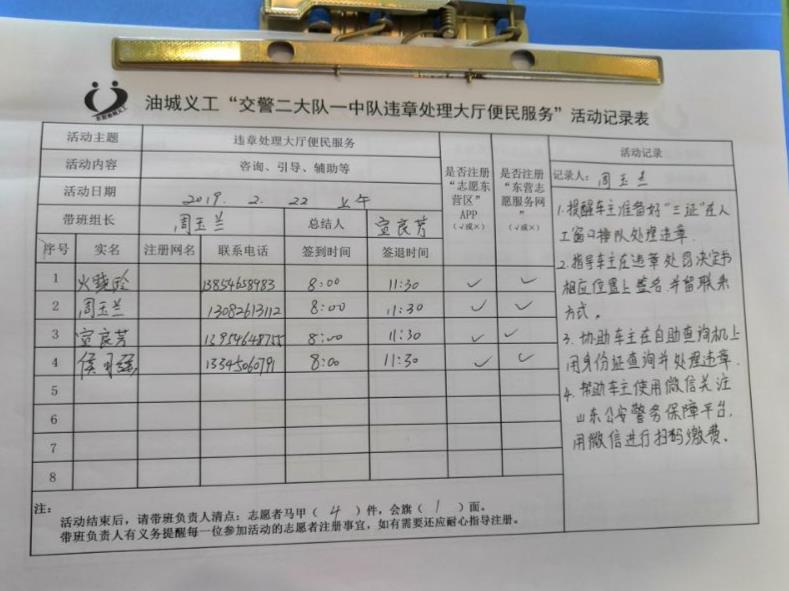 油城义工“交警二大队一中队违章处理大厅便民服务”活动记录表
活动主题 违章处理大厅便民服务
活动内容 咨询、引导、辅助等
活动日期 2019. 2. 22 上午
带班组长 周玉兰 总结人 宣良芳
是否注册“志愿东营区”APP（√或×）
是否注册“东营志愿服务网”（√或×）
活动记录
记录人：周玉兰
序号 实名 注册网名 联系电话 签到时间 签退时间
1 13854658983 8:00 11:30 ✓ ✓
2 周玉兰 13082613112 8:00 11:30 ✓ ✓
3 宣良芳 8:00 11:30 ✓ ✓
4 13345060791 8:00 11:30 ✓ ✓
5
6
7
8
1.提醒车主准备好“三证”在人
工窗口排队处理违章.
2.指导车主在违章处罚决定书
相应位置上签名，并留联系
方式。
3.协助车主在自助查询机上
用身份证查询并处理违章.
4.帮助车主使用微信关注
山东公安警务保障平台，
用微信进行扫码缴费。
注：
活动结束后，请带班负责人清点：志愿者马甲（ 4 ）件，会旗（ 1 ）面。
带班负责人有义务提醒每一位参加活动的志愿者注册事宜，如有需要还应耐心指导注册。